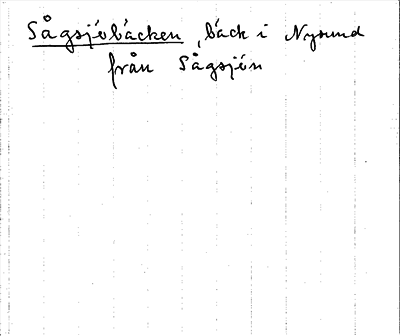 Sågsjöbäcken, bäck i Nysund
från Sågsjön